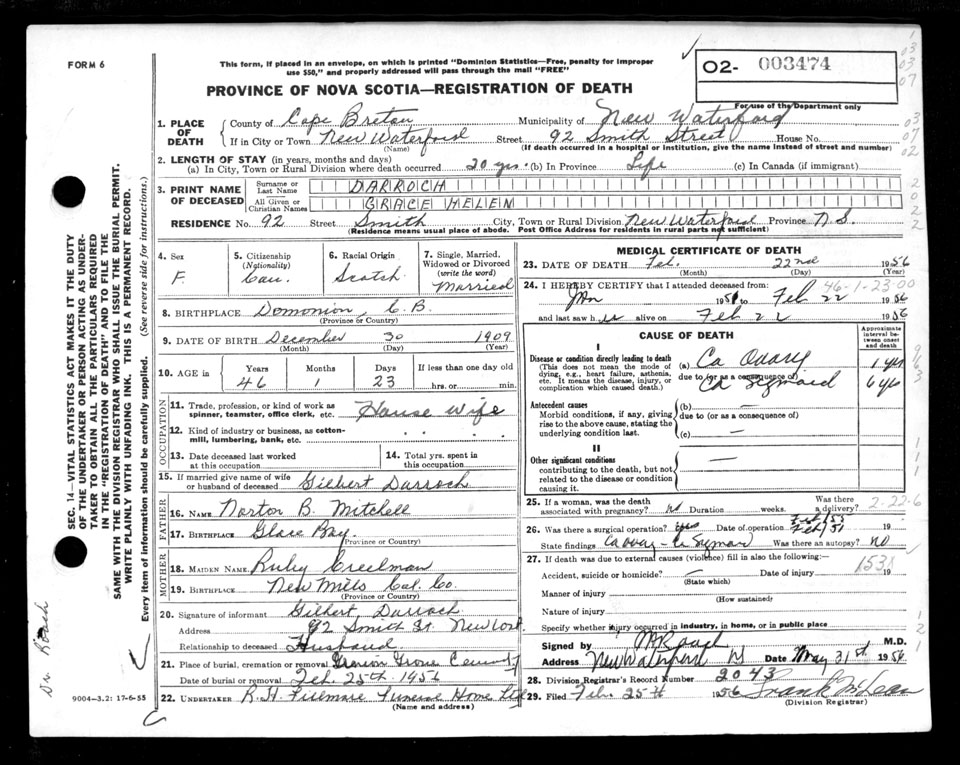 FORM 6
This form, if placed in an envelope, on which is printed "Dominion Statistics—Free, penalty for improper
use $50," and properly addressed will pass through the mail "FREE"
O2- 003474
For use of the Department only
PROVINCE OF NOVA SCOTIA—REGISTRATION OF DEATH
1. PLACE OF DEATH
County of Cape Breton Municipality of New Waterford
If in City or Town New Waterford Street 92 Smith Street House No.
(Name) (If death occurred in a hospital or institution, give the name instead of street and number)
2. LENGTH OF STAY (in years, months and days)
(a) In City, Town or Rural Division where death occurred 20 yrs. (b) In Province Life (c) In Canada (if immigrant)
3. PRINT NAME OF DECEASED
Surname or Last Name DARROCH
All Given or Christian Names GRACE HELEN
RESIDENCE No. 92 Street Smith City, Town or Rural Division New Waterford Province N.S.
(Residence means usual place of abode. Post Office Address for residents in rural parts not sufficient)
4. Sex F.
5. Citizenship (Nationality) Can.
6. Racial Origin Scotch
7. Single, Married, Widowed or Divorced (write the word) Married
8. BIRTHPLACE Domonion, C.B.
(Province or Country)
9. DATE OF BIRTH December 30 1909
(Month) (Day) (Year)
10. AGE in Years Months Days If less than one day old
46 1 23 hrs. or min.
OCCUPATION
11. Trade, profession, or kind of work as spinner, teamster, office clerk, etc. House wife
12. Kind of industry or business, as cotton-mill, lumbering, bank, etc.
13. Date deceased last worked at this occupation
14. Total yrs. spent in this occupation
15. If married give name of wife or husband of deceased Gilbert Darroch
FATHER
16. NAME Norton B. Mitchell
17. BIRTHPLACE Glace Bay
(Province or Country)
MOTHER
18. MAIDEN NAME Ruby Creelman
19. BIRTHPLACE New Mills Col. Co.
(Province or Country)
20. Signature of informant Gilbert Darroch
Address 92 Smith St. New Wat.
Relationship to deceased Husband
21. Place of burial, cremation or removal Grove
Date of burial or removal Feb. 25th 1956
22. UNDERTAKER R.H. Fillmore Funeral Home Ltd
(Name and address)
MEDICAL CERTIFICATE OF DEATH
23. DATE OF DEATH Feb. 22nd 1956
(Month) (Day) (Year)
46-1-23-00
24. I HEREBY CERTIFY that I attended deceased from:
Jan 1956 to Feb 22 1956
and last saw h alive on Feb 22 1956
CAUSE OF DEATH
Approximate interval between onset and death
I
Disease or condition directly leading to death
(This does not mean the mode of dying, e.g., heart failure, asthenia, etc. It means the disease, injury, or complication which caused death.)
(a) Ca Ovary 1 yr
due to (or as a consequence of)
Ca Sigmoid 6 yrs
Antecedent causes
Morbid conditions, if any, giving rise to the above cause, stating the underlying condition last.
(b) —
due to (or as a consequence of)
(c) —
II
Other significant conditions
contributing to the death, but not related to the disease or condition causing it.
—
25. If a woman, was the death associated with pregnancy? No Duration weeks Was there a delivery?
2-22-6
26. Was there a surgical operation? Yes Date of operation Feb/55 Feb/51 19
State findings Ca ovary - Ca Sigmoid Was there an autopsy? no
27. If death was due to external causes (violence) fill in also the following:
Accident, suicide or homicide? — Date of injury 19
1531
(State which)
Manner of injury
(How sustained)
Nature of injury
Specify whether injury occurred in industry, in home, or in public place
Signed by M Roach M.D.
Address New Waterford NS Date May 31st 1956
28. Division Registrar's Record Number 2043
29. Filed Feb. 25th 1956 Frank McLean
(Division Registrar)
SEC. 14—VITAL STATISTICS ACT MAKES IT THE DUTY
OF THE UNDERTAKER OR PERSON ACTING AS UNDER-
TAKER TO OBTAIN ALL THE PARTICULARS REQUIRED
IN THE "REGISTRATION OF DEATH" AND TO FILE THE
SAME WITH THE DIVISION REGISTRAR WHO SHALL ISSUE THE BURIAL PERMIT.
WRITE PLAINLY WITH UNFADING INK. THIS IS A PERMANENT RECORD.
Every item of information should be carefully supplied. (See reverse side for instructions.)
Dr. Roach
9004-3.2: 17-6-55